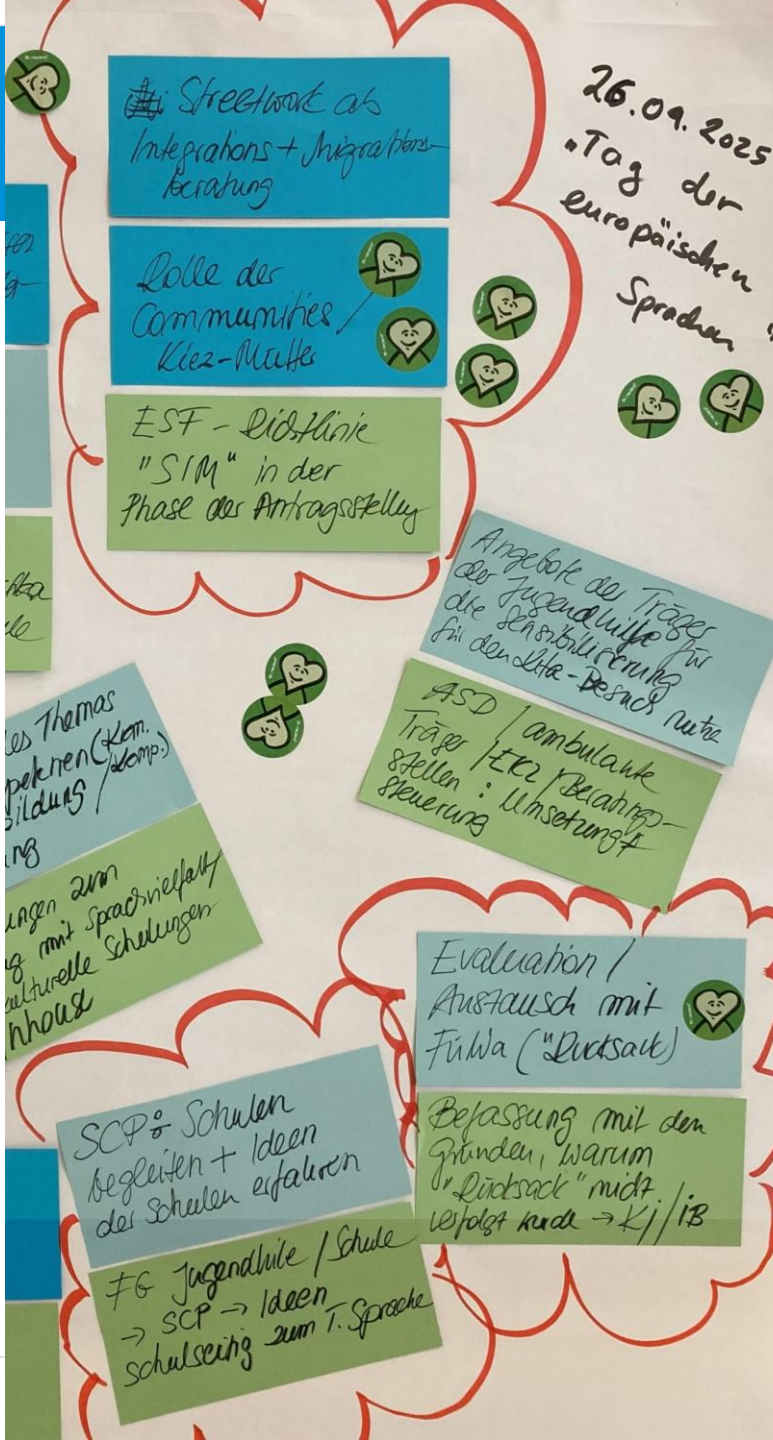 Streetwork als
Integrations + Migrations-
beratung
Rolle der
Communities /
Kiez-Mütter
ESF - Richtlinie
"SIM" in der
Phase der Antragsstellung
26.09.2025
"Tag der
europäischen
Sprachen"
Angebote der Träger
der Jugendhilfe für
die Sensibilisierung
für den Kita-Besuch
ASD / ambulante
Träger / EKZ / Beratungs-
stellen: Umsetzung +
Steuerung
Themas
(Kom.
bildung / Komp.)
ng
ungen zum
g mit Sprachvielfalt /
kulturelle Schulungen
nhouse
Evaluation /
Austausch mit
FüWa ("Rucksack")
Befassung mit den
Gründen, warum
"Rucksack" nicht
verfolgt wurde → KJ / iB
SCP: Schulen
begleiten + Ideen
der Schulen erfahren
FG Jugendhilfe / Schule
→ SCP → Ideen
schulseitig zum T. Sprache